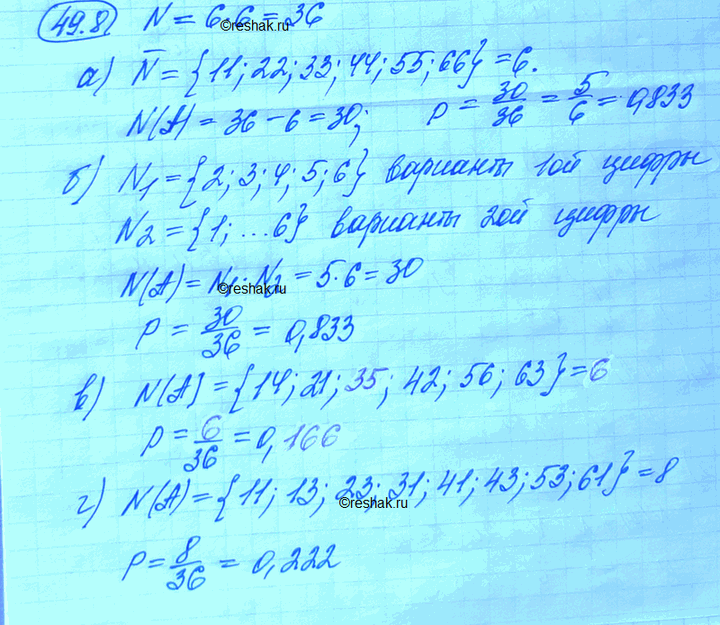 49.8 N = 6·6 = 36
©reshak.ru
а) N̅ = {11; 22; 33; 44; 55; 66} = 6.
N(A) = 36 − 6 = 30; P = 30/36 = 5/6 = 0,833
©reshak.ru
б) N₁ = {2; 3; 4; 5; 6} варианты 1ой цифры
N₂ = {1; ... 6} варианты 2ой цифры
N(A) = N₁·N₂ = 5·6 = 30
©reshak.ru
P = 30/36 = 0,833
в) N(A] = {14; 21; 35; 42; 56; 63} = 6
P = 6/36 = 0,166
г) N(A) = {11; 13; 23; 31; 41; 43; 53; 61} = 8
©reshak.ru
P = 8/36 = 0,222